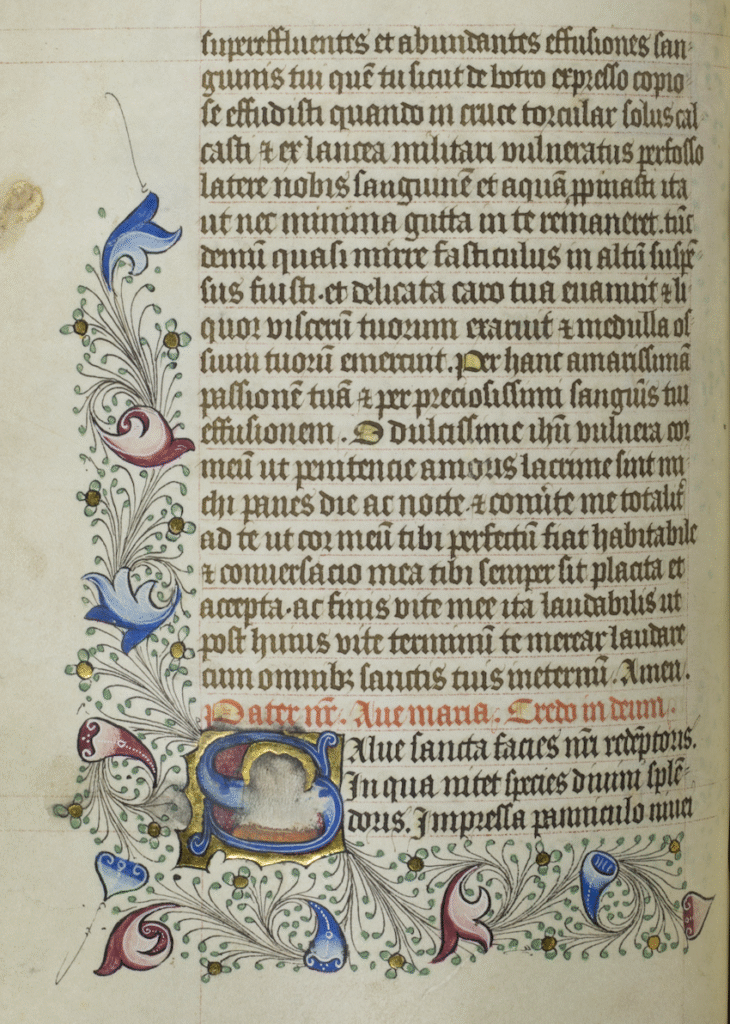 supereffluentes et abundantes effusiones san-
guinis tui quē tu sicut de botro expresso copio
se effudisti quando in cruce torcular solus cal
casti ⁊ ex lancea militari vulneratus perfosso
latere nobis sanguinē et aquā ꝓpinasti ita
ut nec minima gutta in te remaneret. tūc
demū quasi mirre fasciculus in altū suspē
sus fuisti. et delicata caro tua euanuit ⁊ li
quor viscerū tuorum exaruit ⁊ medulla os
sium tuorū emercuit. Per hanc amarissimā
passionē tuā ⁊ per preciosissimi sanguīs tui
effusionem. O dulcissime ihū vulnera cor
meū ut penitencie amoris lacrime sint mi
chi panes die ac nocte. ⁊ conūte me totalit̄
ad te ut cor meū tibi perfectū fiat habitabile
⁊ conuersacio mea tibi semper sit placita et
accepta. ac finis vite mee ita laudabilis ut
post huius vite terminū te merear laudare
cum omnibꝫ sanctis tuis ineternū. Amen.
Pater nr̄. Aue maria. Credo in deum.
SAlue sancta facies nr̄i redēptoris.
In qua nitet species diuini splē-
doris. Impressa panniculo niuei